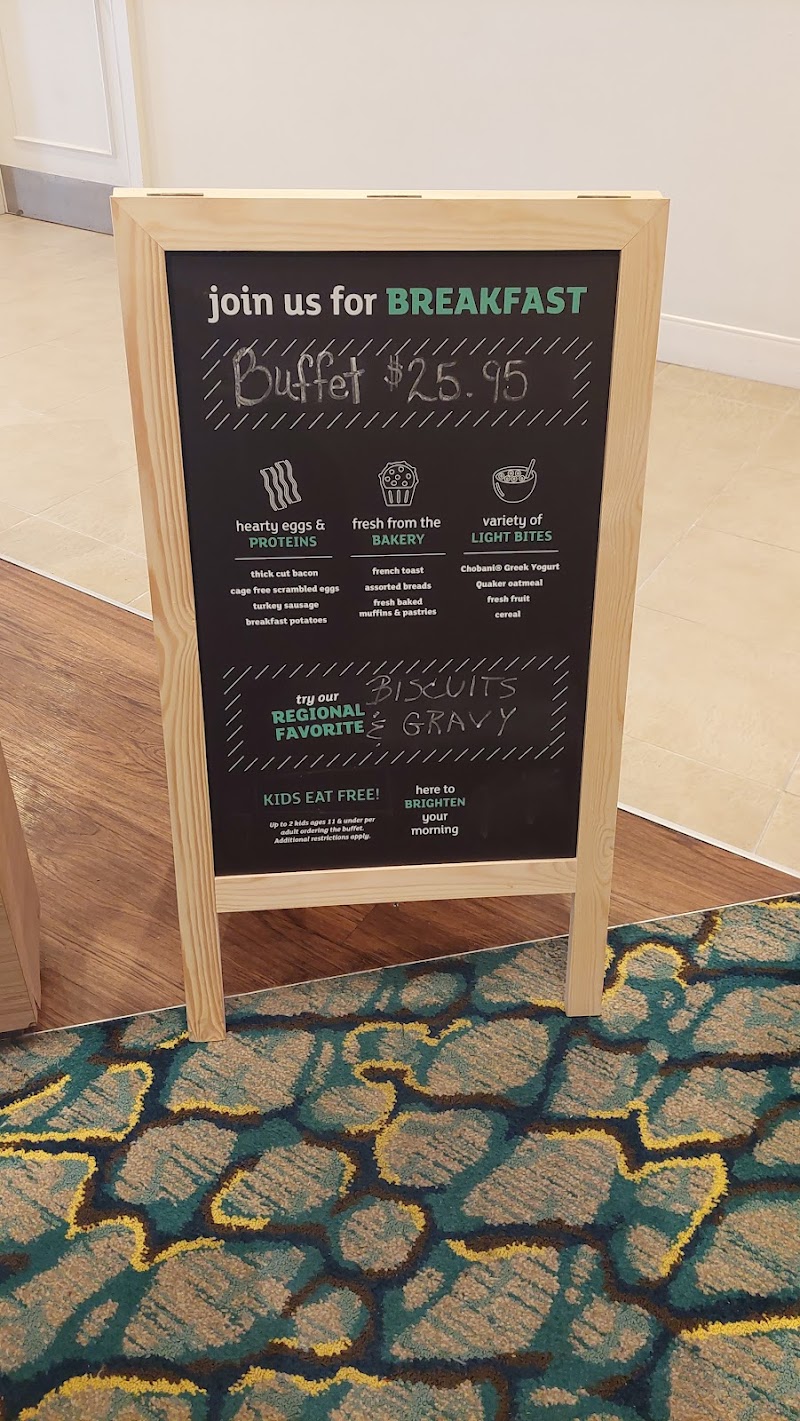 join us for BREAKFAST
Buffet $25.95
hearty eggs &
PROTEINS
thick cut bacon
cage free scrambled eggs
turkey sausage
breakfast potatoes
fresh from the
BAKERY
french toast
assorted breads
fresh baked
muffins & pastries
variety of
LIGHT BITES
Chobani® Greek Yogurt
Quaker oatmeal
fresh fruit
cereal
try our
REGIONAL
FAVORITE
BISCUITS
& GRAVY
KIDS EAT FREE!
Up to 2 kids ages 11 & under per
adult ordering the buffet.
Additional restrictions apply.
here to
BRIGHTEN
your
morning